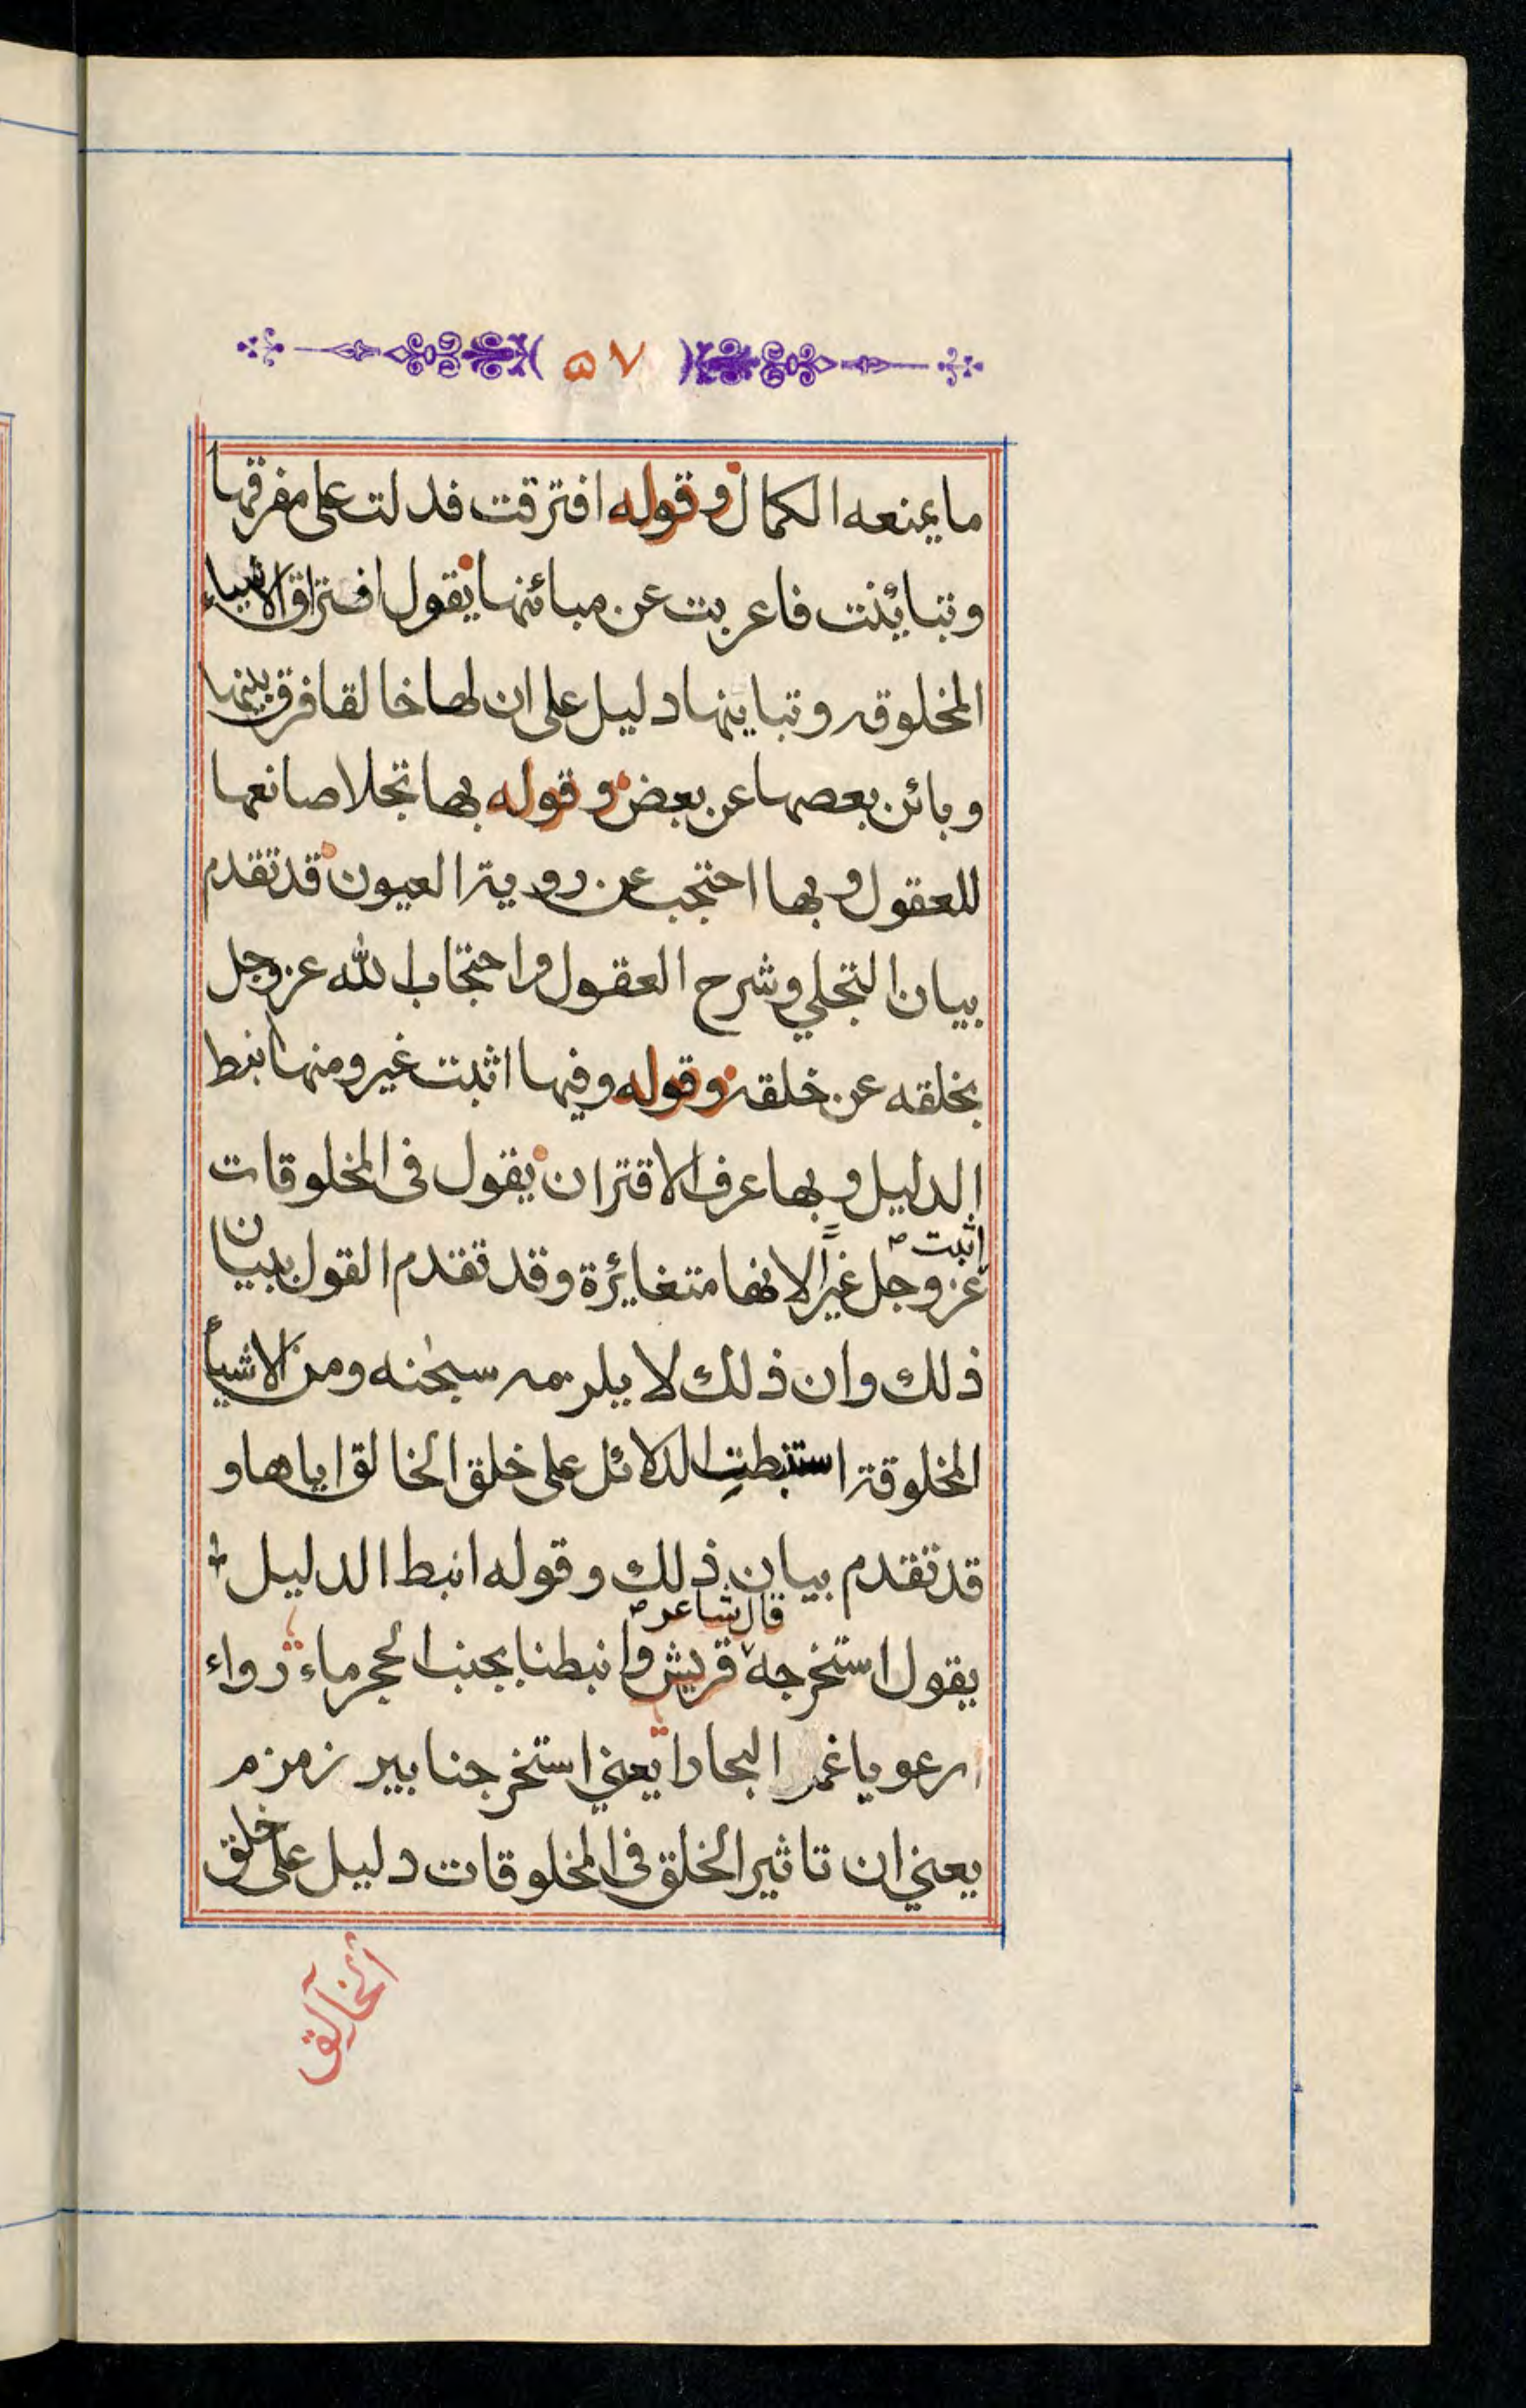 ٥٧
ما يمنعه الكمال وقوله افترقت فدلت على مفرقها
وتبائنت فاعربت عن مبائنها يقول افتراق الاشياء
المخلوقه وتباينها دليل على ان لها خالقا فرق بينها
وبائن بعصها عن بعض وقوله بها تجلا صانعها
للعقول وبها احتجب عن روية العيون قد تقدم
بيان التجلي وشرح العقول واحتجاب الله عز وجل
بخلقه عن خلقه وقوله وفيها اثبت غير ومنها انبط
الدليل وبها عرف الاقتران يقول في المخلوقات
اثبت
عز وجل غيرًا لانها متغائرة وقد تقدم القول ببيان
ذلك وان ذلك لا يلزمه سبحٰنه ومن الاشيأ
المخلوقة استنبطت الدلائل على خلق الخالق اياها و
قد تقدم بيان ذلك وقوله انبط الدليل
قال شاعر
يقول استخرجه قريش وانبطنا بجنب الحجر ماء رواء
ارعو يا غمر البحارا يعني استخرجنا بير زمزم
يعني ان تاثير الخلق في المخلوقات دليل على خلق
الخالق